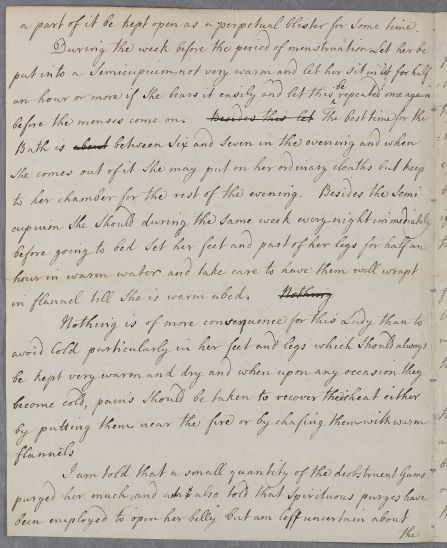 a part of it be kept open as a perpetual blister for some time.
During the week before the period of menstruation Let her be
put into a Semicupium not very warm and let her sit in it for half
an hour or more if she bears it easily and let this be repeated once again
before the menses come on. Besides this let The best time for the
Bath is about between Six and Seven in the evening and when
she comes out of it she may put on her ordinary cloaths but keep
to her chamber for the rest of the evening. Besides the Semi
cupium she should during the same week every night immediately
before going to bed set her feet and part of her legs for half an
hour in warm water and take care to have them well wrapt
in flannel till she is warm abed. Nothing
Nothing is of more consequence for this Lady than to
avoid Cold particularly in her feet and legs which should always
be kept very warm and dry and when upon any occasion they
become cold, pains should be taken to recover their heat either
by putting them near the fire or by chafing them with warm
flannels
I am told that a small quantity of the deobstruent Gums
purged her much, and also told that Spirituous purges have
been employed to open her belly but am left uncertain about
the